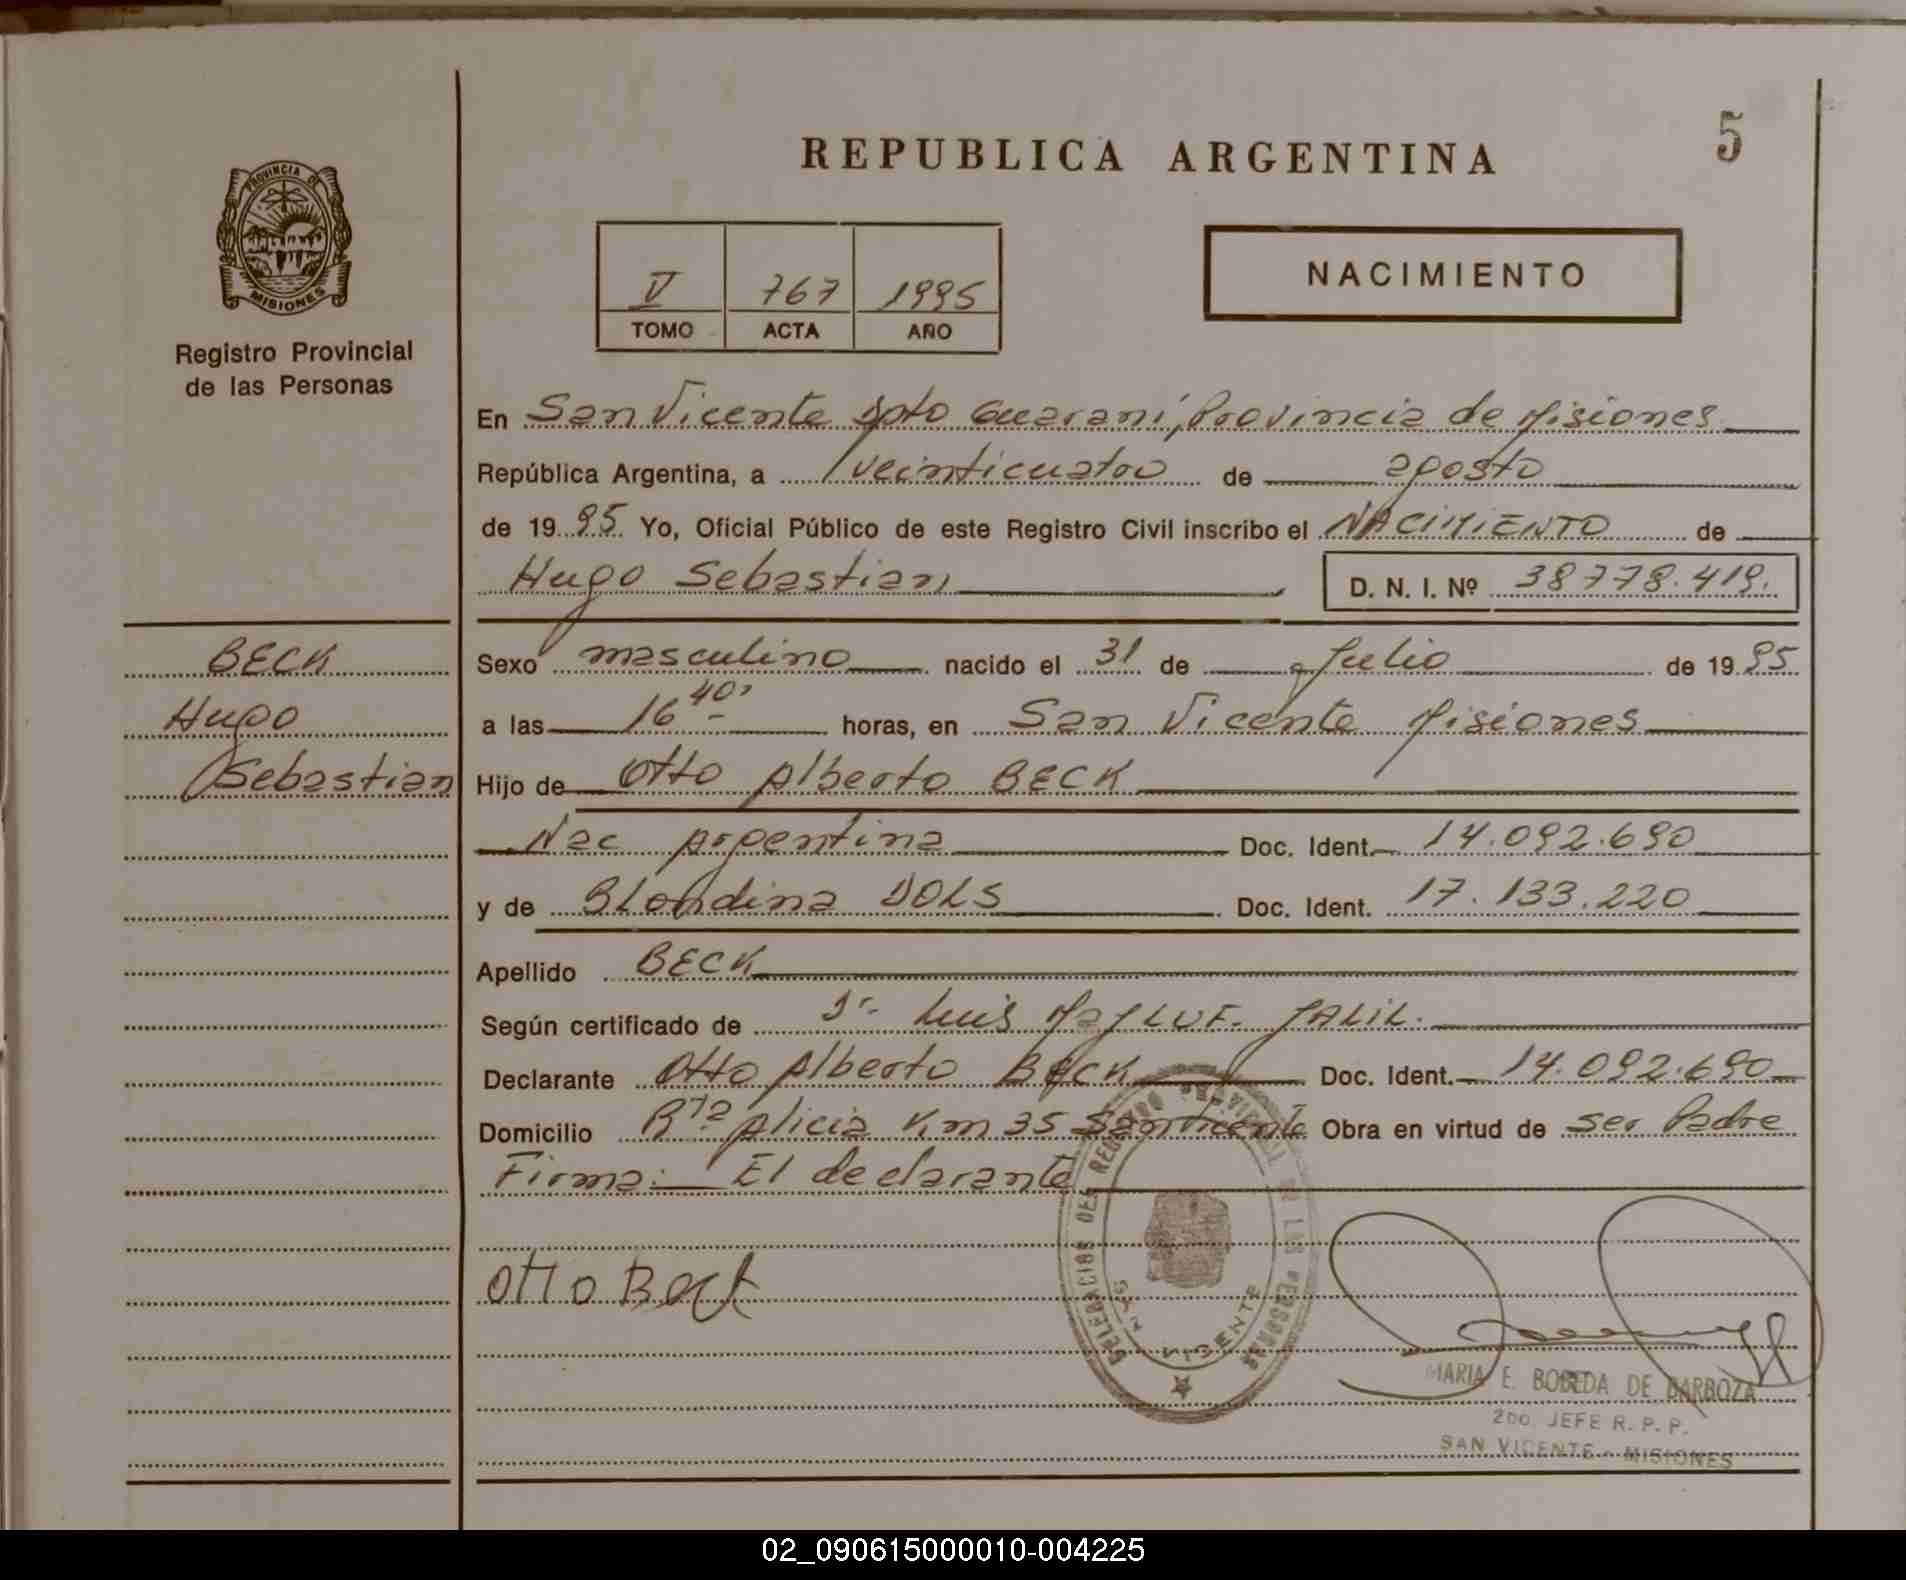 5
REPUBLICA ARGENTINA
PROVINCIA DE
MISIONES
Registro Provincial
de las Personas
V 767 1995
TOMO ACTA AÑO
NACIMIENTO
En San Vicente Dpto Guaraní, Provincia de Misiones
República Argentina, a veinticuatro de agosto
de 1995 Yo, Oficial Público de este Registro Civil inscribo el NACIMIENTO de
Hugo Sebastian D. N. I. Nº 38778.419.
BECK
Hugo
Sebastian
Sexo masculino nacido el 31 de Julio de 1995
a las 16 40' horas, en San Vicente Misiones
Hijo de Otto Alberto BECK
Nac Argentina Doc. Ident. 14.092.690
y de Blondina DOLS Doc. Ident. 17.133.220
Apellido BECK
Según certificado de Dr. Luis JALIL.
Declarante Otto Alberto BECK Doc. Ident. 14.092.690
Domicilio Rta Alicia Km 35 San Vicente Obra en virtud de ser Padre
Firma: El declarante
Otto Beck
DELEGACION DEL REGISTRO PROVINCIAL DE LAS PERSONAS
VICENTE
MARIA E. BOBEDA DE BARBOZA
2do JEFE R. P. P.
SAN VICENTE - MISIONES
02_090615000010-004225